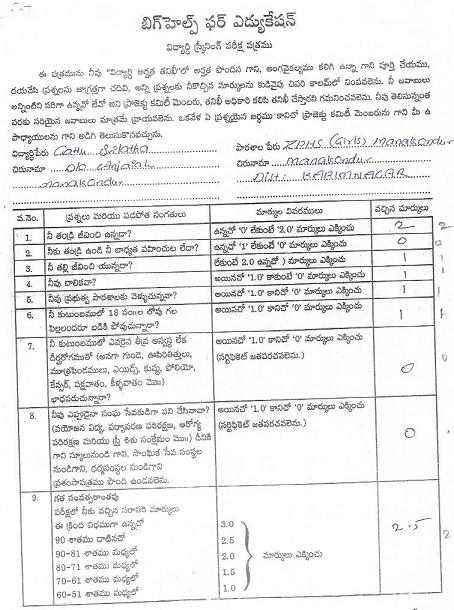 బిగ్‌హెల్ప్ ఫర్ ఎడ్యుకేషన్
విద్యార్థి స్క్రీనింగ్ పరీక్ష పత్రము
ఈ పత్రమును నీవు "విద్యార్థి అర్హత తనిఖీ"లో అర్హత పొందిన గాని, అంగవైకల్యము కలిగి ఉన్నా గాని పూర్తి చేయము,
దయచేసి ప్రశ్నలను జాగ్రత్తగా చదివి, అన్ని ప్రశ్నలకు నీకొచ్చిన మార్కులను కుడివైపు చివరి కాలమ్‌లో నింపవలెను. నీ జవాబులు
అన్నింటిని సరిగా ఉన్నవో లేవో అని ప్రాజెక్టు కమిటీ మెంబరు, తనిఖీ అధికారి కలిసి తనిఖీ చేస్తారని గమనించవలెను. నీవు తెలిసున్నంత
వరకు సరియైన జవాబులు మాత్రమే వ్రాయవలెను. ఒకవేళ ఏ ప్రశ్నయైన అర్థము కానిచో ప్రాజెక్టు కమిటీ మెంబరును గాని మీ ఉ
పాధ్యాయులను గాని అడిగి తెలుసుకొనవచ్చును.
విద్యార్థిపేరు Gattu Srilatha పాఠశాల పేరు ZPHS (Girls) Manakondur
చిరునామా చిరునామా Manakondur
manakondur Dist: KARIMNAGAR
వ.నెం. ప్రశ్నలు మరియు పదపోత సంగతులు మార్కుల వివరములు వచ్చిన మార్కులు
1. నీ తండ్రి జీవించి ఉన్నడా? ఉన్నచో '0' లేకుంటే '2.0' మార్కులు ఎక్కించు 2 2
2. నీకు తండ్రి ఉండి నీ బాధ్యత వహించుట లేదా? ఉన్నచో '1' లేకుంటే '0' మార్కులు ఎక్కించు 0 0
3. నీ తల్లి జీవించి యున్నదా? లేకుంటే 2.0 ఉన్నచో ) మార్కులు ఎక్కించు 1 1
4. నీవు బాలికవా? అయినచో '1.0' కాకుంటే '0' మార్కులు ఎక్కించు 1 1
5. నీవు ప్రభుత్వ పాఠశాలకు వెళ్ళుచున్నవా? అయినచో '1.0' కానిచో '0' మార్కులు ఎక్కించు 1 1
6. నీ కుటుంబములో 18 సం॥ల లోపు గల అయినచో '1.0' కానిచో '0' మార్కులు ఎక్కించు 1 1
పిల్లలందరూ బడికి పోవుచున్నారా?
7. నీ కుటుంబములో ఎవరైన తీవ్ర అస్వస్థ లేక అయినచో '1.0' కానిచో '0' మార్కులు ఎక్కించు 0
దీర్ఘరోగముతో (అనగా గుండె, ఊపిరితిత్తులు, (సర్టిఫికెట్ జతపరచవలెను.)
మూత్రపిండములు, ఎయిడ్స్, కుష్టు, పోలియో,
కేన్సర్, పక్షవాతం, కీళ్ళవాతం మొ॥)
భాధపడుచున్నారా?
8. నీవు ఎప్పుడైనా సంఘ సేవకుడిగా పని చేసినావా? అయినచో '1.0' కానిచో '0' మార్కులు ఎక్కించు 0
(వయోజన విద్య, పర్యావరణ పరిరక్షణ, ఆరోగ్య (సర్టిఫికెట్ జతపరచవలెను.)
పరిరక్షణ మరియు స్త్రీ శిశు సంక్షేమం మొ॥) దీనికి
గాని స్కూలునుండి గాని, సాంఘిక సేవ సంస్థల
నుండిగాని, ధర్మసంస్థల నుండిగాని
ప్రశంసాపత్రము పొంది ఉండవలెను.
9. గత సంవత్సరాంతపు
పరీక్షలో నీకు వచ్చిన సరాసరి మార్కులు
ఈ క్రింద విధముగా ఉన్నచో 3.0 2.5
90 శాతము దాటినచో 2.5
90-81 శాతము మధ్యలో 2.0 మార్కులు ఎక్కించు
80-71 శాతము మధ్యలో 1.5
70-61 శాతము మధ్యలో 1.0
60-51 శాతము మధ్యలో